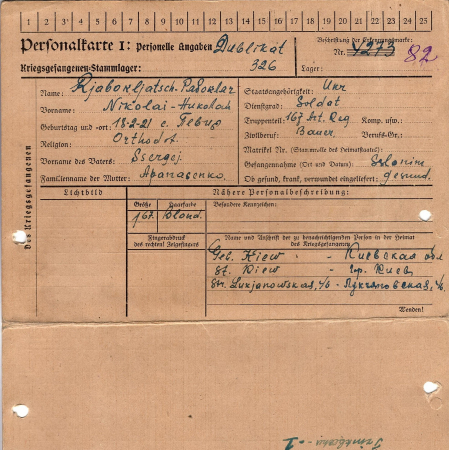 1 2 3 4 5 6 7 8 9 10 11 12 13 14 15 16 17 18 19 20 21 22 23 24 25
Personalkarte I: Personelle Angaben Dublikat
Kriegsgefangenen-Stammlager: 326
Beschriftung der Erkennungsmarke:
Nr. 4273 82
Lager:
Des Kriegsgefangenen
Name: Rjabokljatsch-
Vorname: Nikolai-Николай
Geburtstag und -ort: 18-2-21
Religion: Orthodox.
Vorname des Vaters: Ssergej
Familienname der Mutter: Apanasenko.
Staatsangehörigkeit: Ukr
Dienstgrad: Soldat
Truppenteil: 167 Art. Reg Komp. usw.:
Zivilberuf: Bauer Berufs-Gr.:
Matrikel Nr. (Stammrolle des Heimatstaates):
Gefangennahme (Ort und Datum): Slonim
Ob gesund, krank, verwundet eingeliefert: gesund.
Lichtbild
Nähere Personalbeschreibung:
Größe Haarfarbe Besondere Kennzeichen:
167. Blond.
Fingerabdruck
des rechten! Zeigefingers
Name und Anschrift der zu benachrichtigenden Person in der Heimat
des Kriegsgefangenen:
Geb. Kiew - Киевская обл
St. Kiew - гор. Киев
Str. Lukjanowskas, - Лукьяновская,
Wenden!